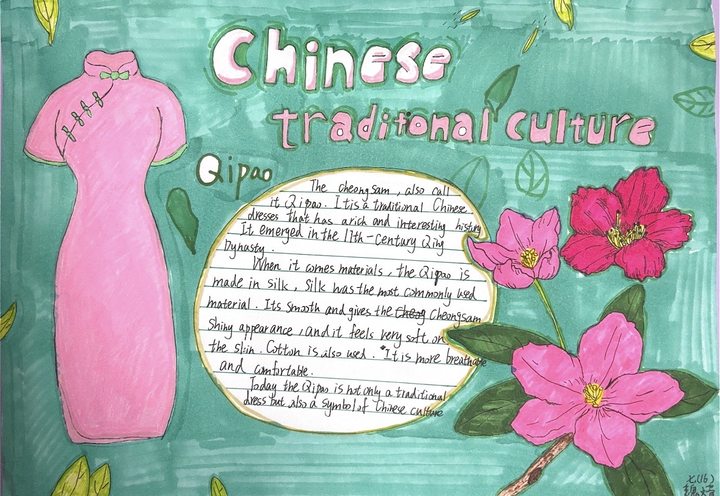 Chinese
traditional culture
Qipao
The cheongsam, also call
it Qipao. It is a traditional Chinese
dresses that has a rich and interesting history
It emerged in the 17th-century Qing
Dynasty.
When it comes materials, the Qipao is
made in silk. Silk was the most commonly used
material. Its smooth and gives the Cheongsam
shiny appearance, and it feels very soft on
the skin. Cotton is also used. It is more breathable
and comfortable.
Today the Qipao is not only a traditional
dress but also a symbol of Chinese culture
七(16)